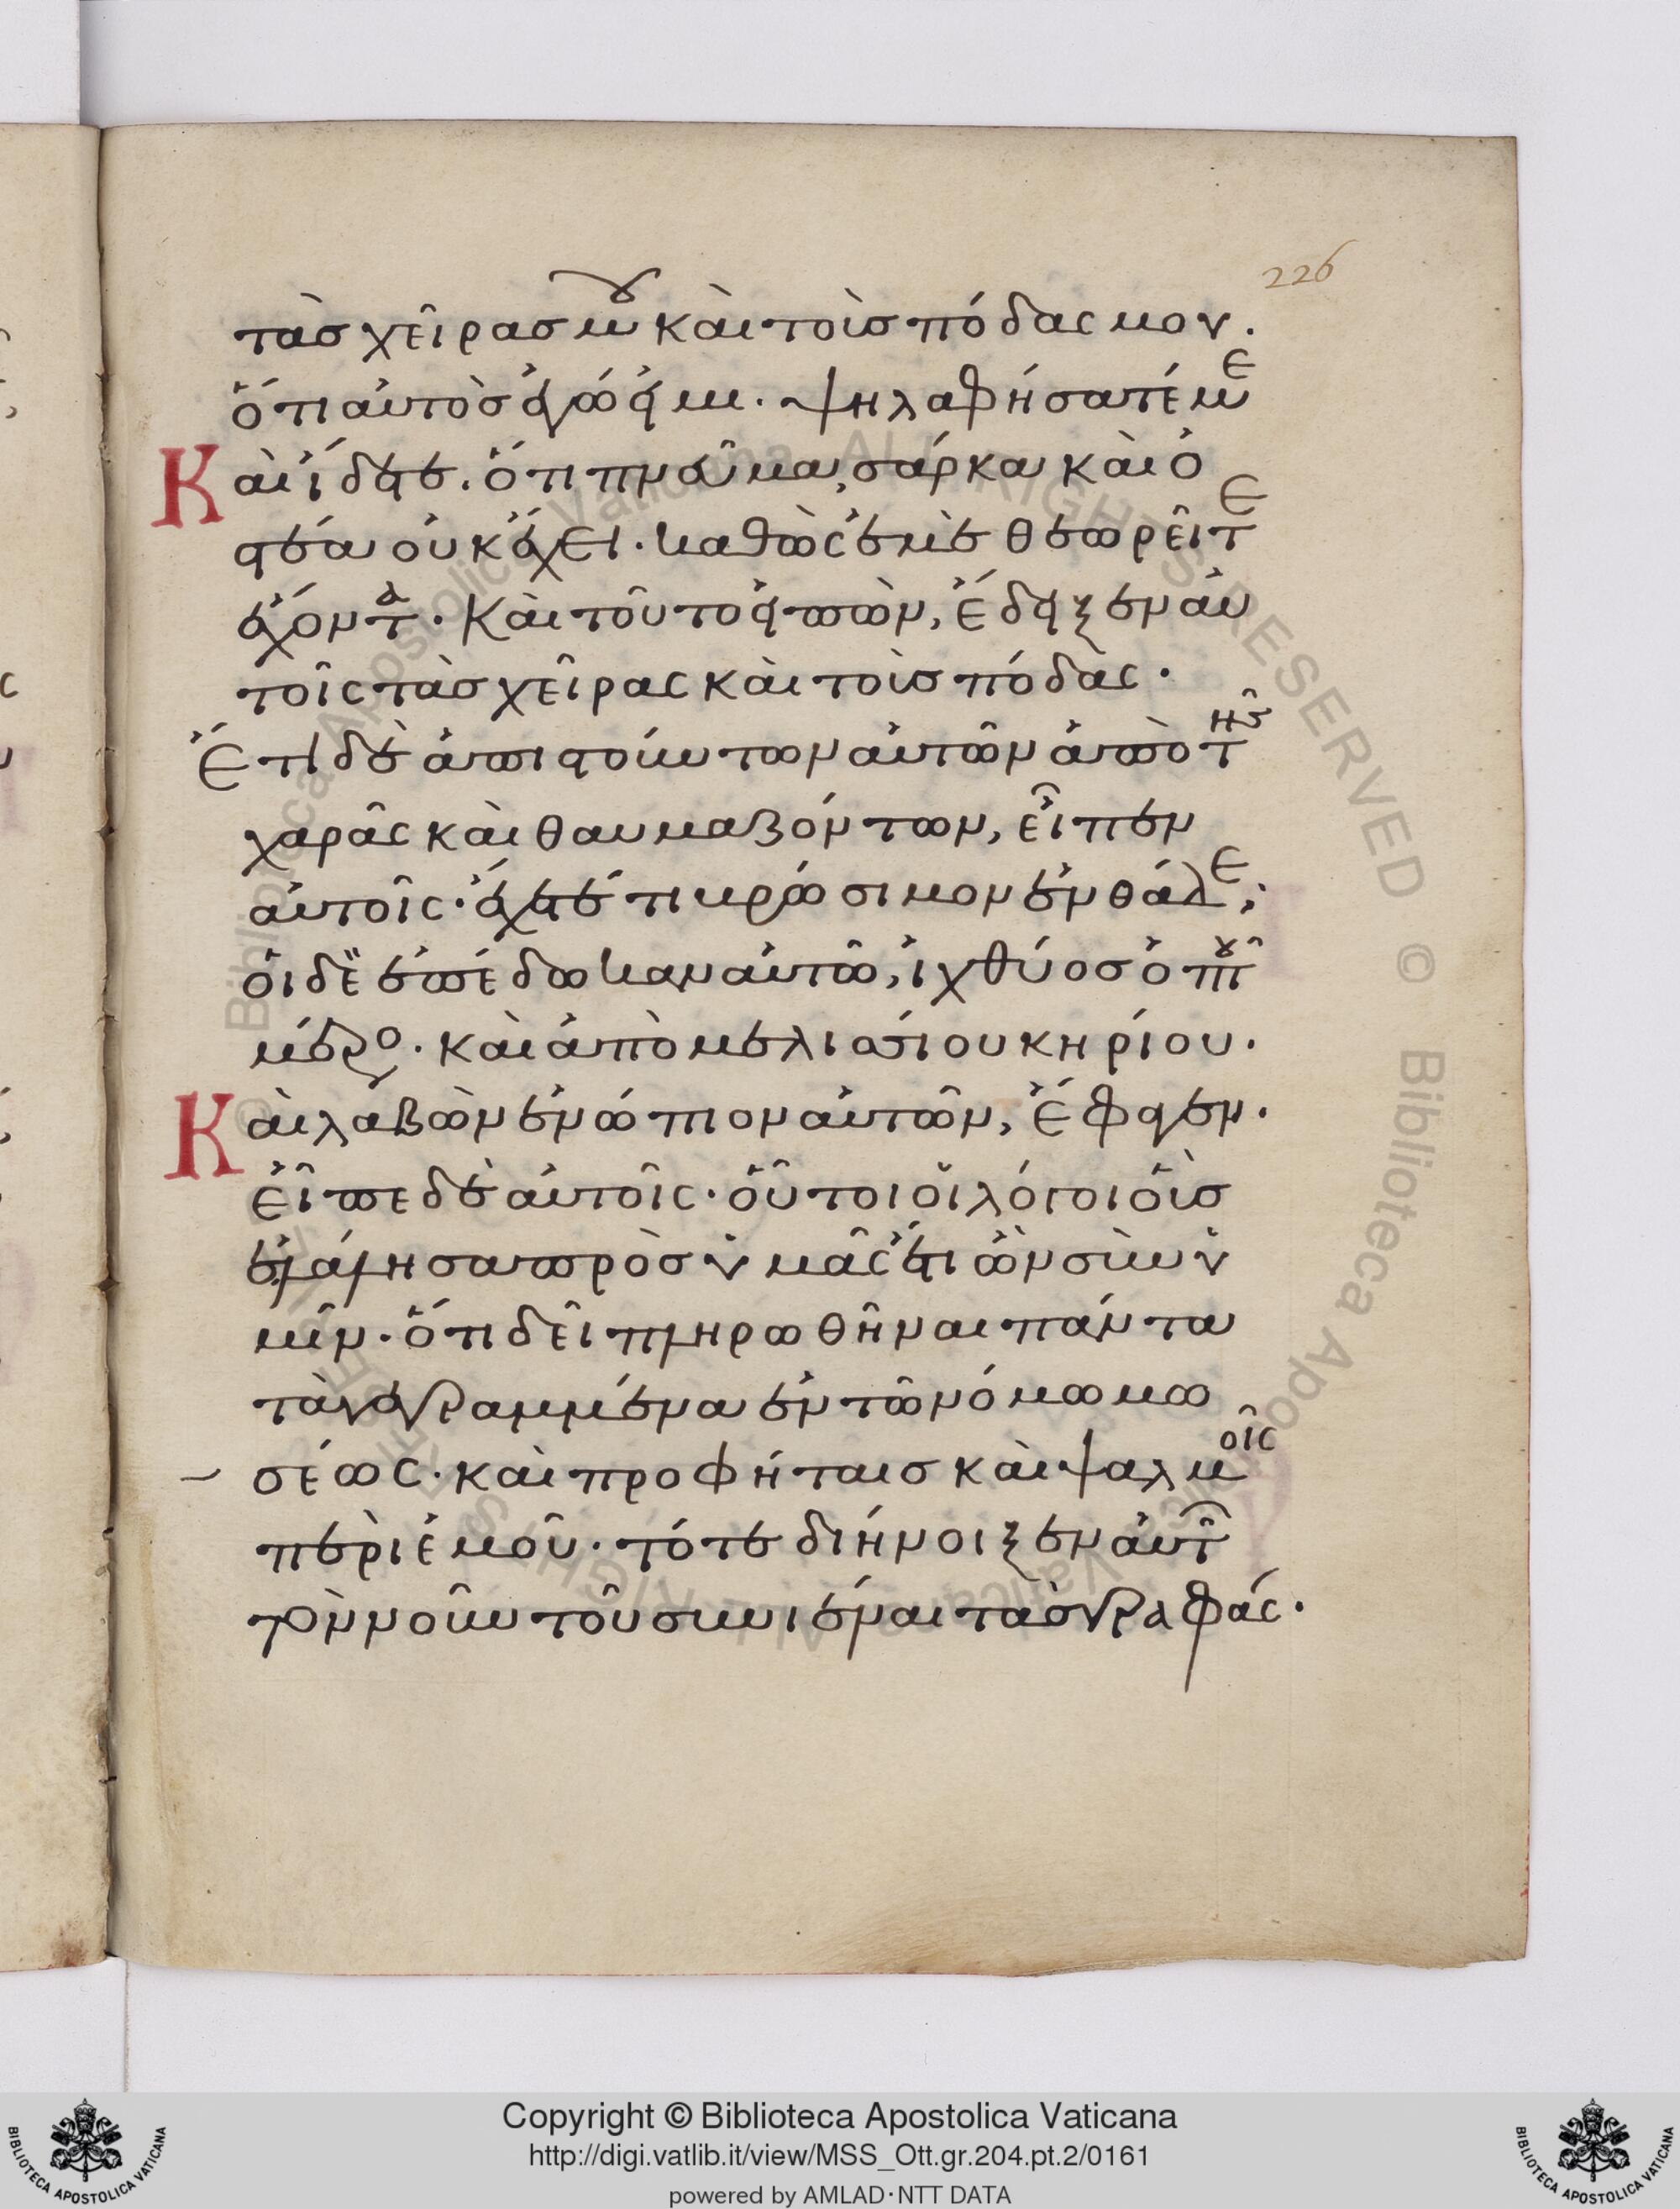 226
τὰς χεῖρας μου καὶ τοὺς πόδας μου.
ὅτι αὐτὸς ἐγώ εἰμι· ψηλαφήσατέ με
Καὶ ἴδετε· ὅτι πνεῦμα, σάρκα καὶ ὀ
στέα οὐκ ἔχει· καθὼς ἐμὲ θεωρεῖτε
ἔχοντα· Καὶ τοῦτο εἰπὼν, ἔδειξεν αὐ
τοῖς τὰς χεῖρας καὶ τοὺς πόδας·
Ἔτι δὲ ἀπιστούντων αὐτῶν ἀπὸ τῆς
χαρᾶς καὶ θαυμαζόντων, εἶπεν
αὐτοῖς· ἔχετέ τι βρώσιμον ἐνθάδε;
οἱ δὲ ἐπέδωκαν αὐτῶ, ἰχθύος ὀπτοῦ
μέρος· καὶ ἀπὸ μελισσίου κηρίου·
Καὶ λαβὼν ἐνώπιον αὐτῶν, ἔφαγεν·
εἶπε δὲ αὐτοῖς· οὗτοι οἱ λόγοι οὓς
ἐλάλησα πρὸς ὑμᾶς ἔτι ὢν σὺν ὑ
μῖν· ὅτι δεῖ πληρωθῆναι πάντα
τὰ γεγραμμένα ἐν τῶ νόμω μω
σέως· καὶ προφήταις καὶ ψαλμοῖς
περὶ ἐμοῦ· τότε διήνοιξεν αὐτῶν
τὸν νοῦν τοῦ συνιέναι τὰς γραφάς·
Copyright © Biblioteca Apostolica Vaticana
http://digi.vatlib.it/view/MSS_Ott.gr.204.pt.2/0161
powered by AMLAD·NTT DATA